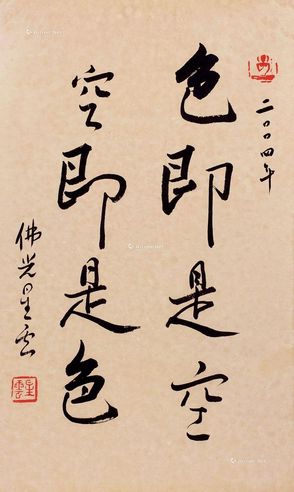 二〇〇四年
色即是空
空即是色
佛光星雲
星雲